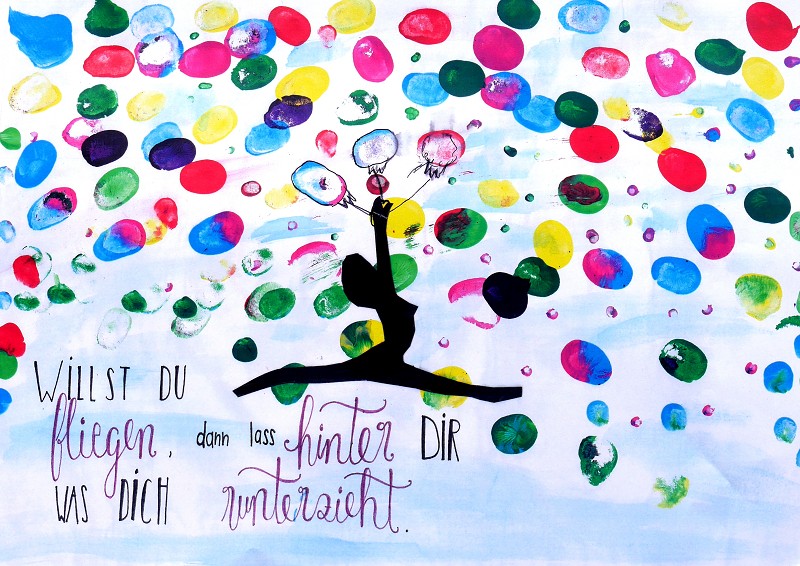 WILLST DU
fliegen, dann lass hinter DIR
WAS DICH runterzieht.